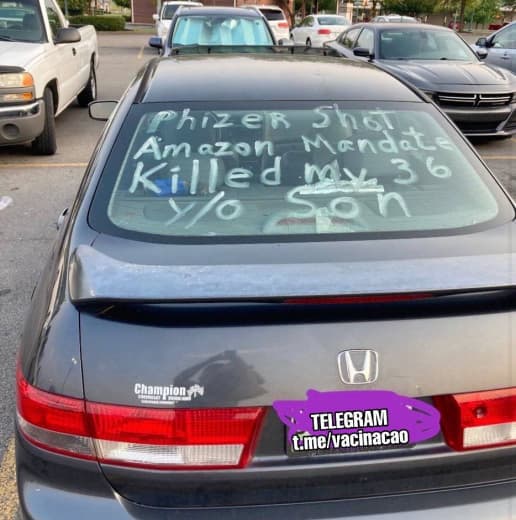 Phizer Shot
Amazon Mandate
Killed my 36
y/o Son
Champion
TELEGRAM
t.me/vacinacao